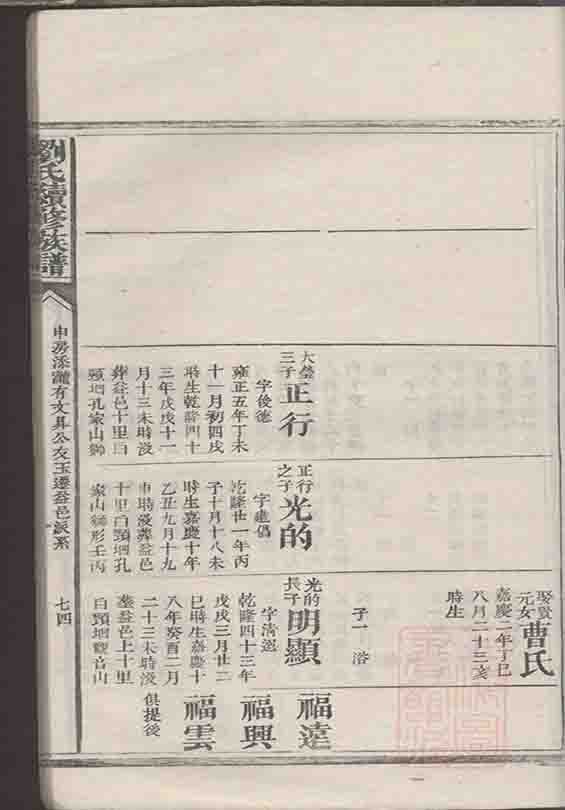 劉氏續修族譜
七四
大瑩三子正行
字後德
雍正五年丁未
十一月初四戌
時生乾隆四十
三年戊戌十一
月十三未時沒
葬益邑十里白
頸堌孔家山獅
正行之子光的
字繼倡
乾隆廿一年丙
子十月十八未
時生嘉慶十年
乙丑九月十九
申時沒葬益邑
十里白頸堌孔
家山獅形壬丙
娶賢元女曹氏
嘉慶二年丁巳
八月二十三亥
時生
子一 溶
光的長子明顯
字清選
乾隆四十三年
戊戌三月廿二
巳時生嘉慶十
八年癸酉二月
二十三未時沒
葬益邑上十里
白頸堌觀音山
福遠
福興
福雲
俱提後